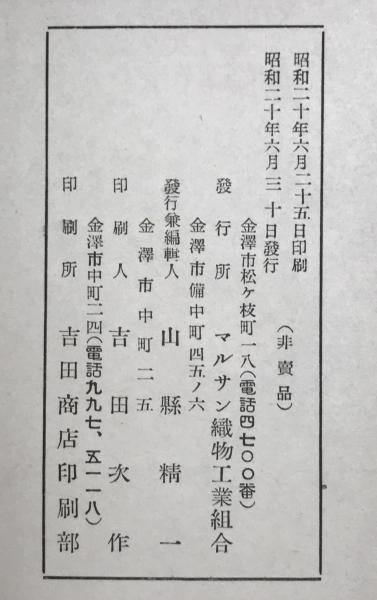 昭和二十年六月二十五日印刷
昭和二十年六月三十日發行
(非賣品)
金澤市松ヶ枝町一八(電話四七〇〇番)
發行所 マルサン織物工業組合
金澤市備中町四五ノ六
發行兼編輯人 山縣精一
金澤市中町二五
印刷人 吉田次作
金澤市中町二四(電話九九七、五一一八)
印刷所 吉田商店印刷部